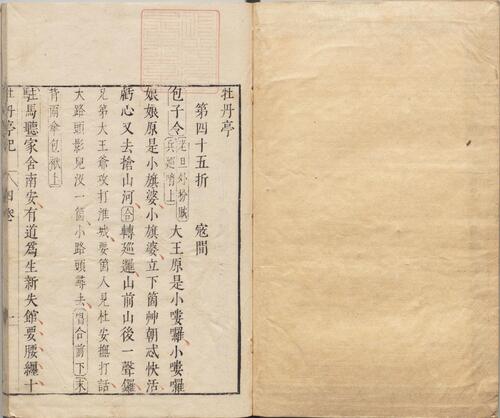 牡丹亭
第四十五折　寇間
包子令老旦外扮賊兵廵哨上大王原是小嘍囉小嘍囉
娘娘原是小旗婆小旗婆立下箇艸朝忒快活
虧心又去搶山河合轉廵邏山前山後一聲鑼
兄弟大王爺攻打淮城要箇人見杜安撫打話
大路頭影兒沒一箇小路頭尋去唱合前下末
背雨傘包袱上
駐馬聽家舍南安有道爲生新失館要腰纏十
牡丹亭記
四卷
一